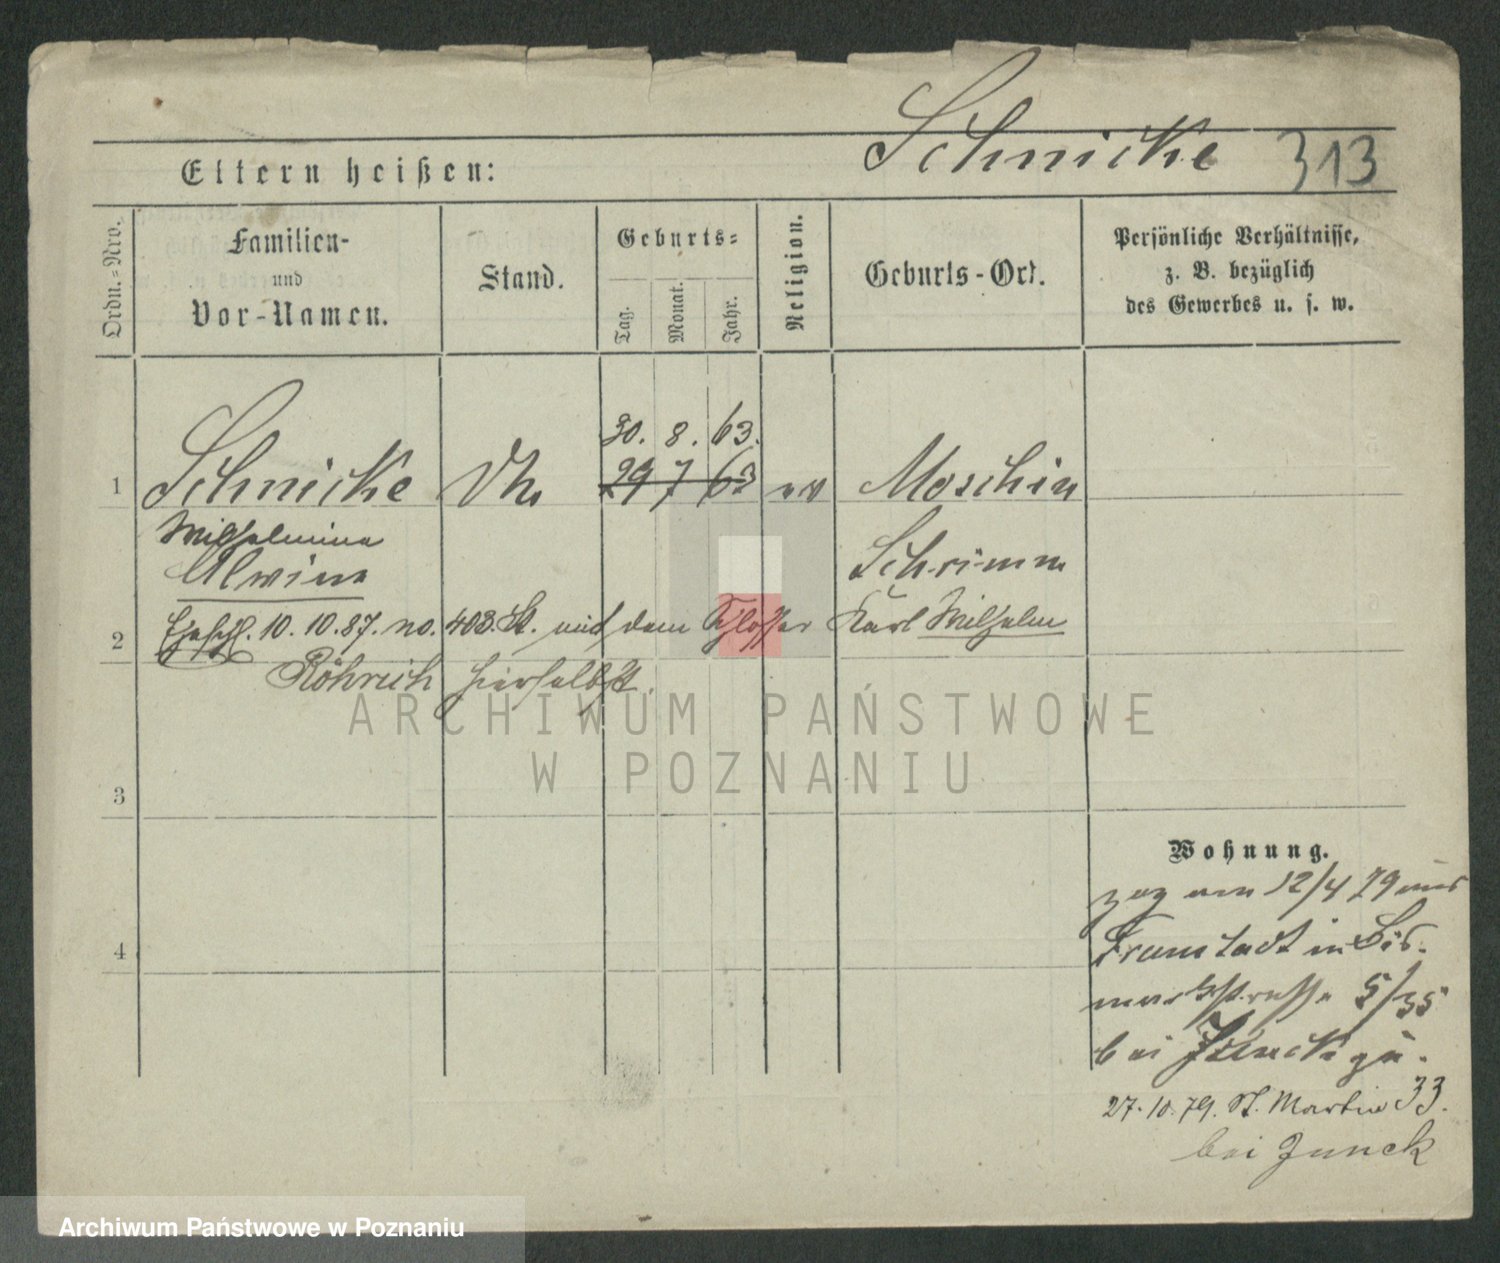 Schnicke 313
Eltern heißen:
Ordn.-Nro.
Familien-
und
Vor-Namen.
Stand.
Geburts-
Tag.
Monat.
Jahr.
Religion.
Geburts-Ort.
Persönliche Verhältnisse,
z. B. bezüglich
des Gewerbes u. s. w.
30. 8. 63.
1 Schnicke 29 7 63 Moschin
Wilhelmina
Alwine
Schrimm
2 10. 10. 87. no. 403. St. mit dem Schlosser Karl Wilhelm
Röhrich hierselbst.
3
4
Wohnung.
zog am 12/4 79 aus
Fraustadt in Bis-
markstrasse 5/35
bei Junck zu.
27. 10. 79. St. Martin 33.
bei Junck
ARCHIWUM PAŃSTWOWE
W POZNANIU
Archiwum Państwowe w Poznaniu